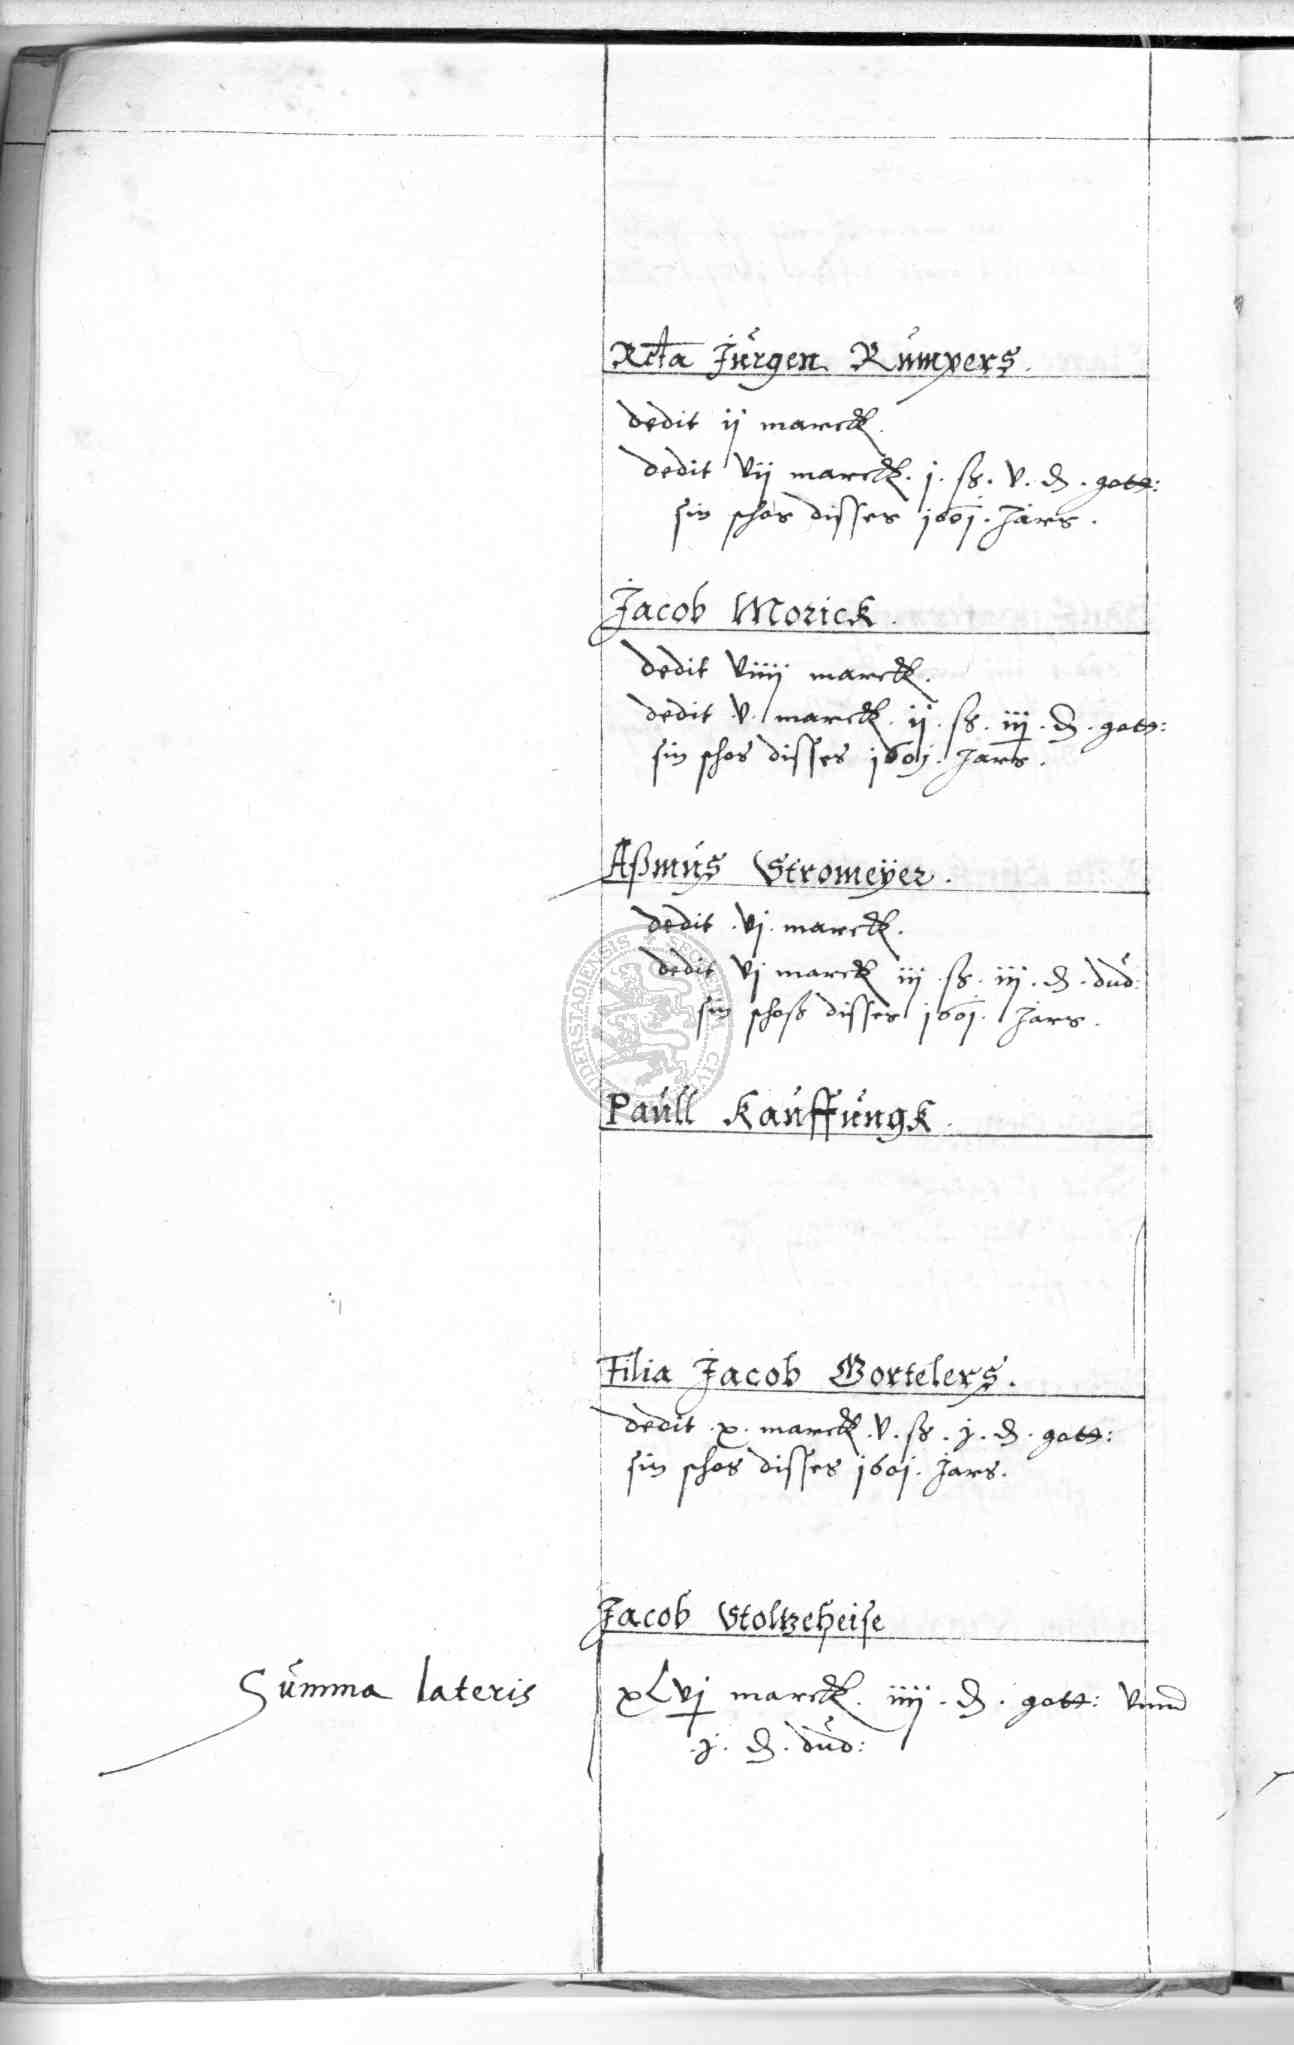 Rcta Jürgen Rümpers.
dedit ij marck.
dedit vij marck. j. ß. v. ₰. gott:
sin schos disses 1601. Jars.
Jacob Morick.
dedit viiij marck.
dedit .v. marck. ij. ß. iij. ₰. gott:
sin schos disses 1601. Jars.
Aßmus Stromeÿer.
dedit .vj. marck.
dedit vj marck iij ß. iij. ₰. dud:
sin schoß disses 1601. Jars.
Paull Kauffungk.
Filia Jacob Gortelers.
dedit .x. marck. v. ß. j. ₰. gott:
sin schos disses 1601. Jars.
Jacob Stoltzeheise
Summa lateris xLvj marck. iiij. ₰. gott: vnnd
.j. ₰. dud: